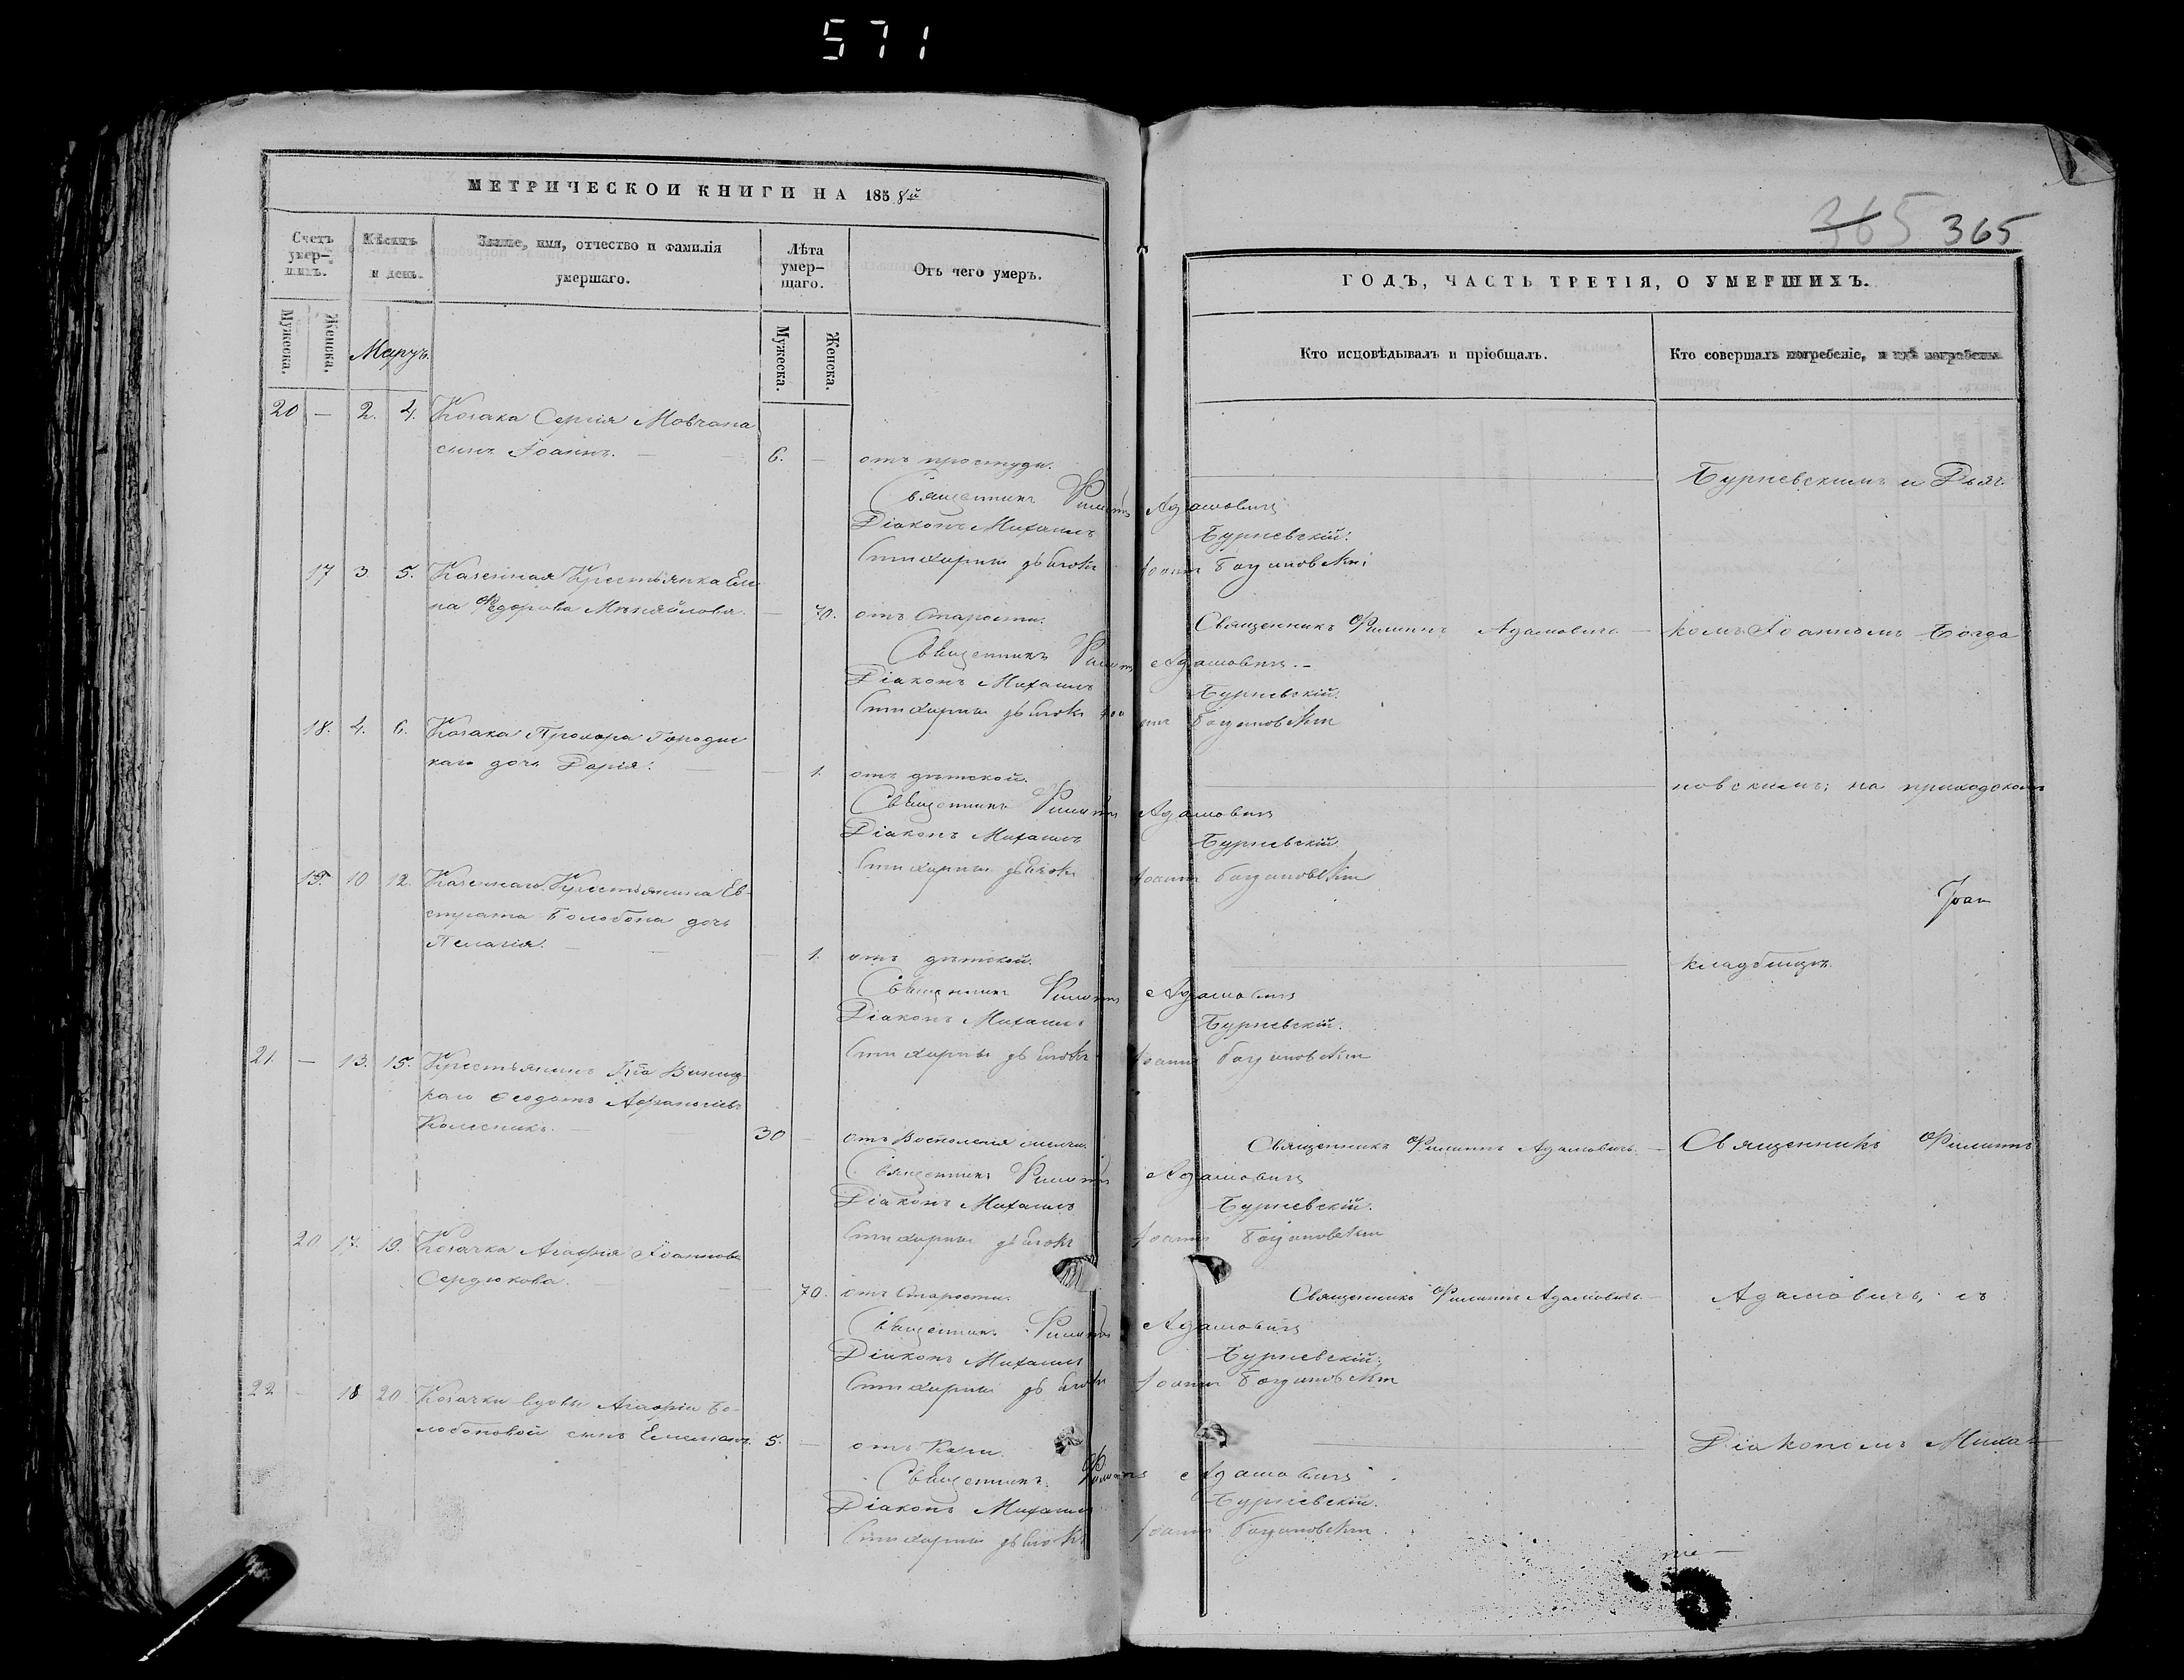 571
МЕТРИЧЕСКОЙ КНИГИ НА 1858й
Счетъ умер-шихъ.
Мѣсяцъ и день.
Званіе, имя, отчество и фамилія умершаго.
Лѣта умер-шаго.
Отъ чего умеръ.
Мужеска.
Женска.
Мартъ.
Мужеска.
Женска.
20 — 2. 4. Козака Сергія Мовчана
сынъ Іоаннъ. — 6. — отъ простуды.
Священникъ Филиппъ Адамовичъ
Діаконъ Михаилъ Бурневскій.
Стихарный дьячокъ Іоаннъ Богдановскій
17 3 5. Казенная Крестьянка Еле
на Ѳедорова Михайлова. — 70. отъ старости.
Священникъ Филиппъ Адамовичъ. —
Діаконъ Михаилъ Бурневскій.
Стихарный дьячокъ Іоаннъ Богдановскій
18. 4. 6. Козака Прохора Городис
каго дочь Дарія. — 1. отъ дѣтской.
Священникъ Филиппъ Адамовичъ
Діаконъ Михаилъ Бурневскій.
Стихарный дьячокъ Іоаннъ Богдановскій
19. 10 12. Казеннаго Крестьянина Ев-
страта Болобона дочь
Пелагія. — 1. отъ дѣтской.
Священникъ Филиппъ Адамовичъ
Діаконъ Михаилъ Бурневскій.
Стихарный дьячокъ Іоаннъ Богдановскій
21. — 13. 15. Крестьянинъ
каго Ѳеодотъ
Колесникъ. — 30 — отъ
Священникъ Филиппъ Адамовичъ
Діаконъ Михаилъ Бурневскій.
Стихарный дьячокъ Іоаннъ Богдановскій
20 17. 19. Козачка Агафія Іоаннова
Сердюкова. — 70. отъ старости.
Священникъ Филиппъ Адамовичъ
Діаконъ Михаилъ Бурневскій.
Стихарный дьячокъ Іоаннъ Богдановскій
22 — 18 20 Козачки вдовы Агафіи Бо-
лобоновой сынъ Емелианъ. 5. — отъ Кори.
Священникъ Филиппъ Адамовичъ
Діаконъ Михаилъ Бурневскій.
Стихарный дьячокъ Іоаннъ Богдановскій.
365 365
ГОДЪ, ЧАСТЬ ТРЕТІЯ, О УМЕРШИХЪ.
Кто исповѣдывалъ и пріобщалъ.
Кто совершалъ погребеніе, и гдѣ погребены
Бурневскимъ и Дьяч
Священникъ Филиппъ Адамовичъ. —
комъ Іоанномъ Богда
новскимъ; на приходскомъ
Іоан
кладбищѣ.
Священникъ Филиппъ Адамовичъ. —
Священникъ Филиппъ
Священникъ Филиппъ Адамовичъ. —
Адамовичъ, съ
Діакономъ Миха-